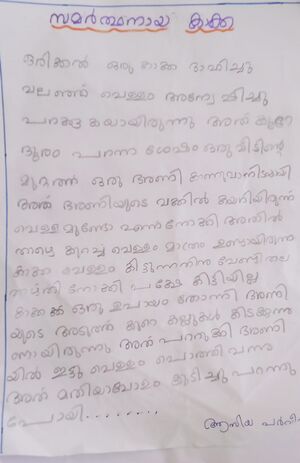 സമർത്ഥനായ കാക്ക
ഒരിക്കൽ ഒരു കാക്ക ദാഹിച്ചു
വലഞ്ഞ് വെള്ളം അന്വേഷിച്ചു
പറക്കുകയായിരുന്നു അത് കുറേ
ദൂരം പറന്ന ശേഷം ഒരു വീടിന്റെ
മുറ്റത്ത് ഒരു ഭരണി കാണുവാനിടയായി
അത് ഭരണിയുടെ വക്കിൽ കയറിയിരുന്ന്
വെള്ളമുണ്ടോ എന്ന് നോക്കി അതിൽ
താഴെ കുറച്ച് വെള്ളം മാത്രം ഉണ്ടായിരുന്നു
കാക്ക വെള്ളം കിട്ടുന്നതിനു വേണ്ടി തല
താഴ്ത്തി നോക്കി പക്ഷേ കിട്ടിയില്ല
കാക്കക്ക് ഒരു ഉപായം തോന്നി ഭരണി
യുടെ അടുത്ത് കുറെ കല്ലുകൾ കിടക്കുന്നു
ണ്ടായിരുന്നു അത് പറുക്കി ഭരണി
യിൽ ഇട്ടു വെള്ളം പൊങ്ങി വന്നു
അത് മതിയാവോളം കുടിച്ചു പറന്നു
പോയി.........
ആസിയ പർവീ